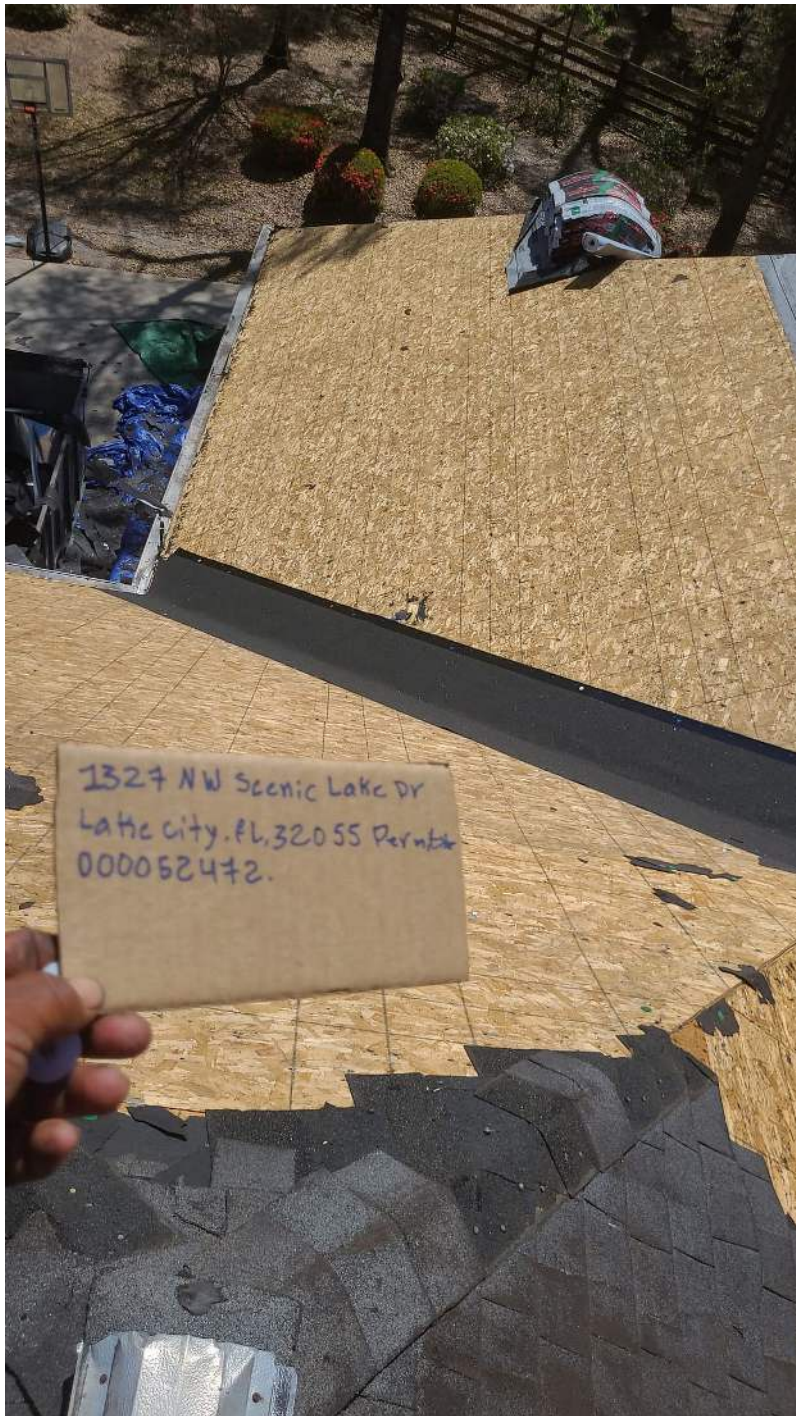 1327 NW Scenic Lake Dr
Lake city. FL, 32055 Permit#
000052472.